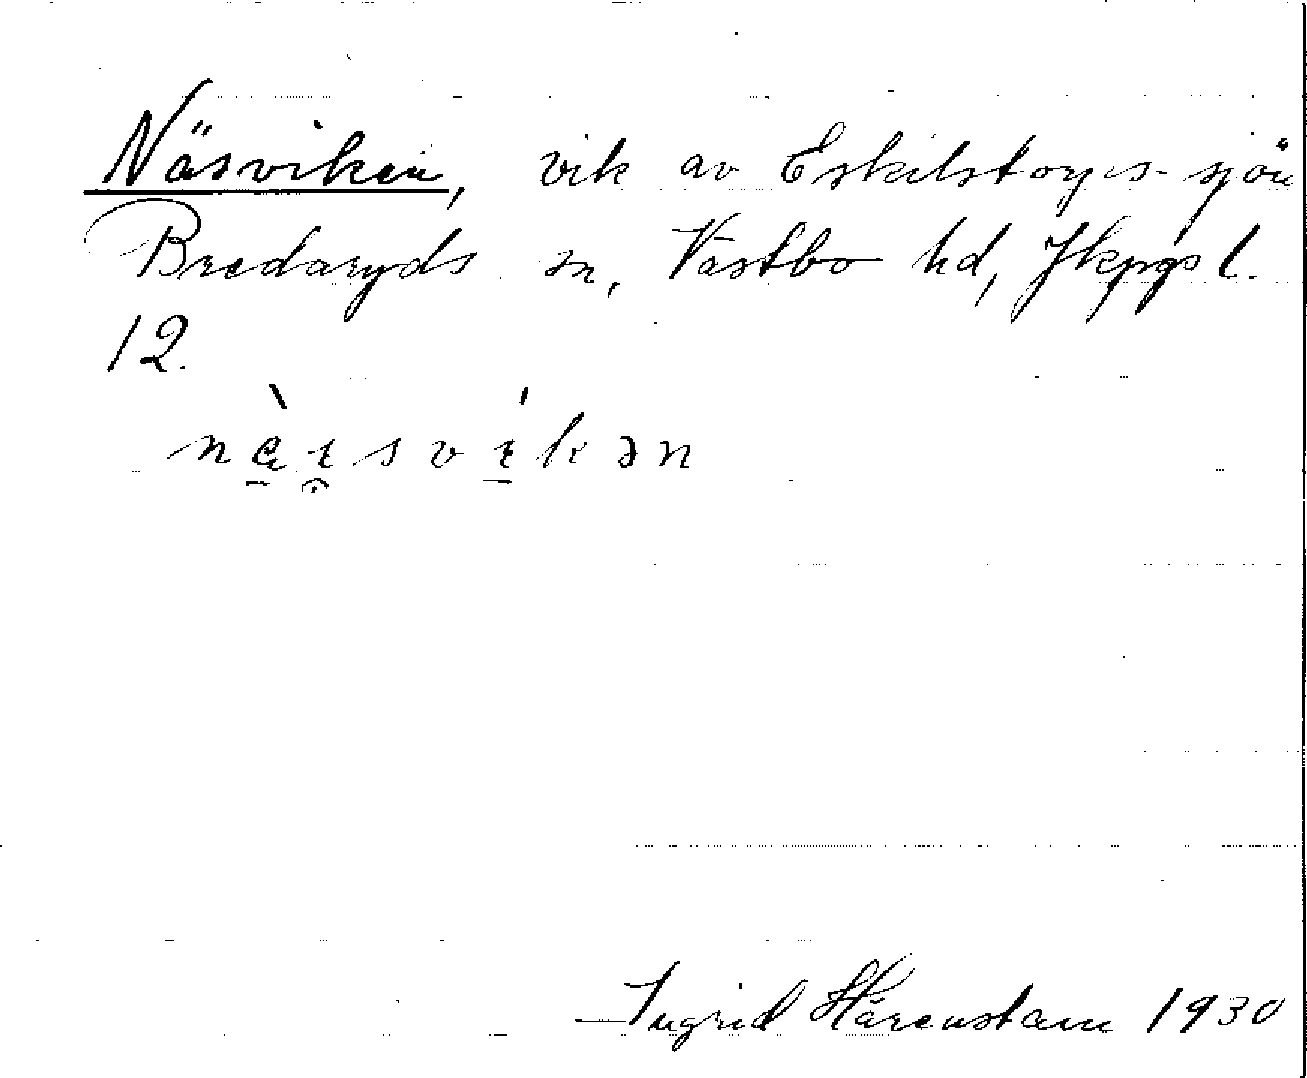 Näsviken, vik av Eskilstorps-sjön
Bredaryds sn, Västbo hd, Jkpgs l.
12.
nä̀ɪsvíkən
Ingrid Härenstam 1930